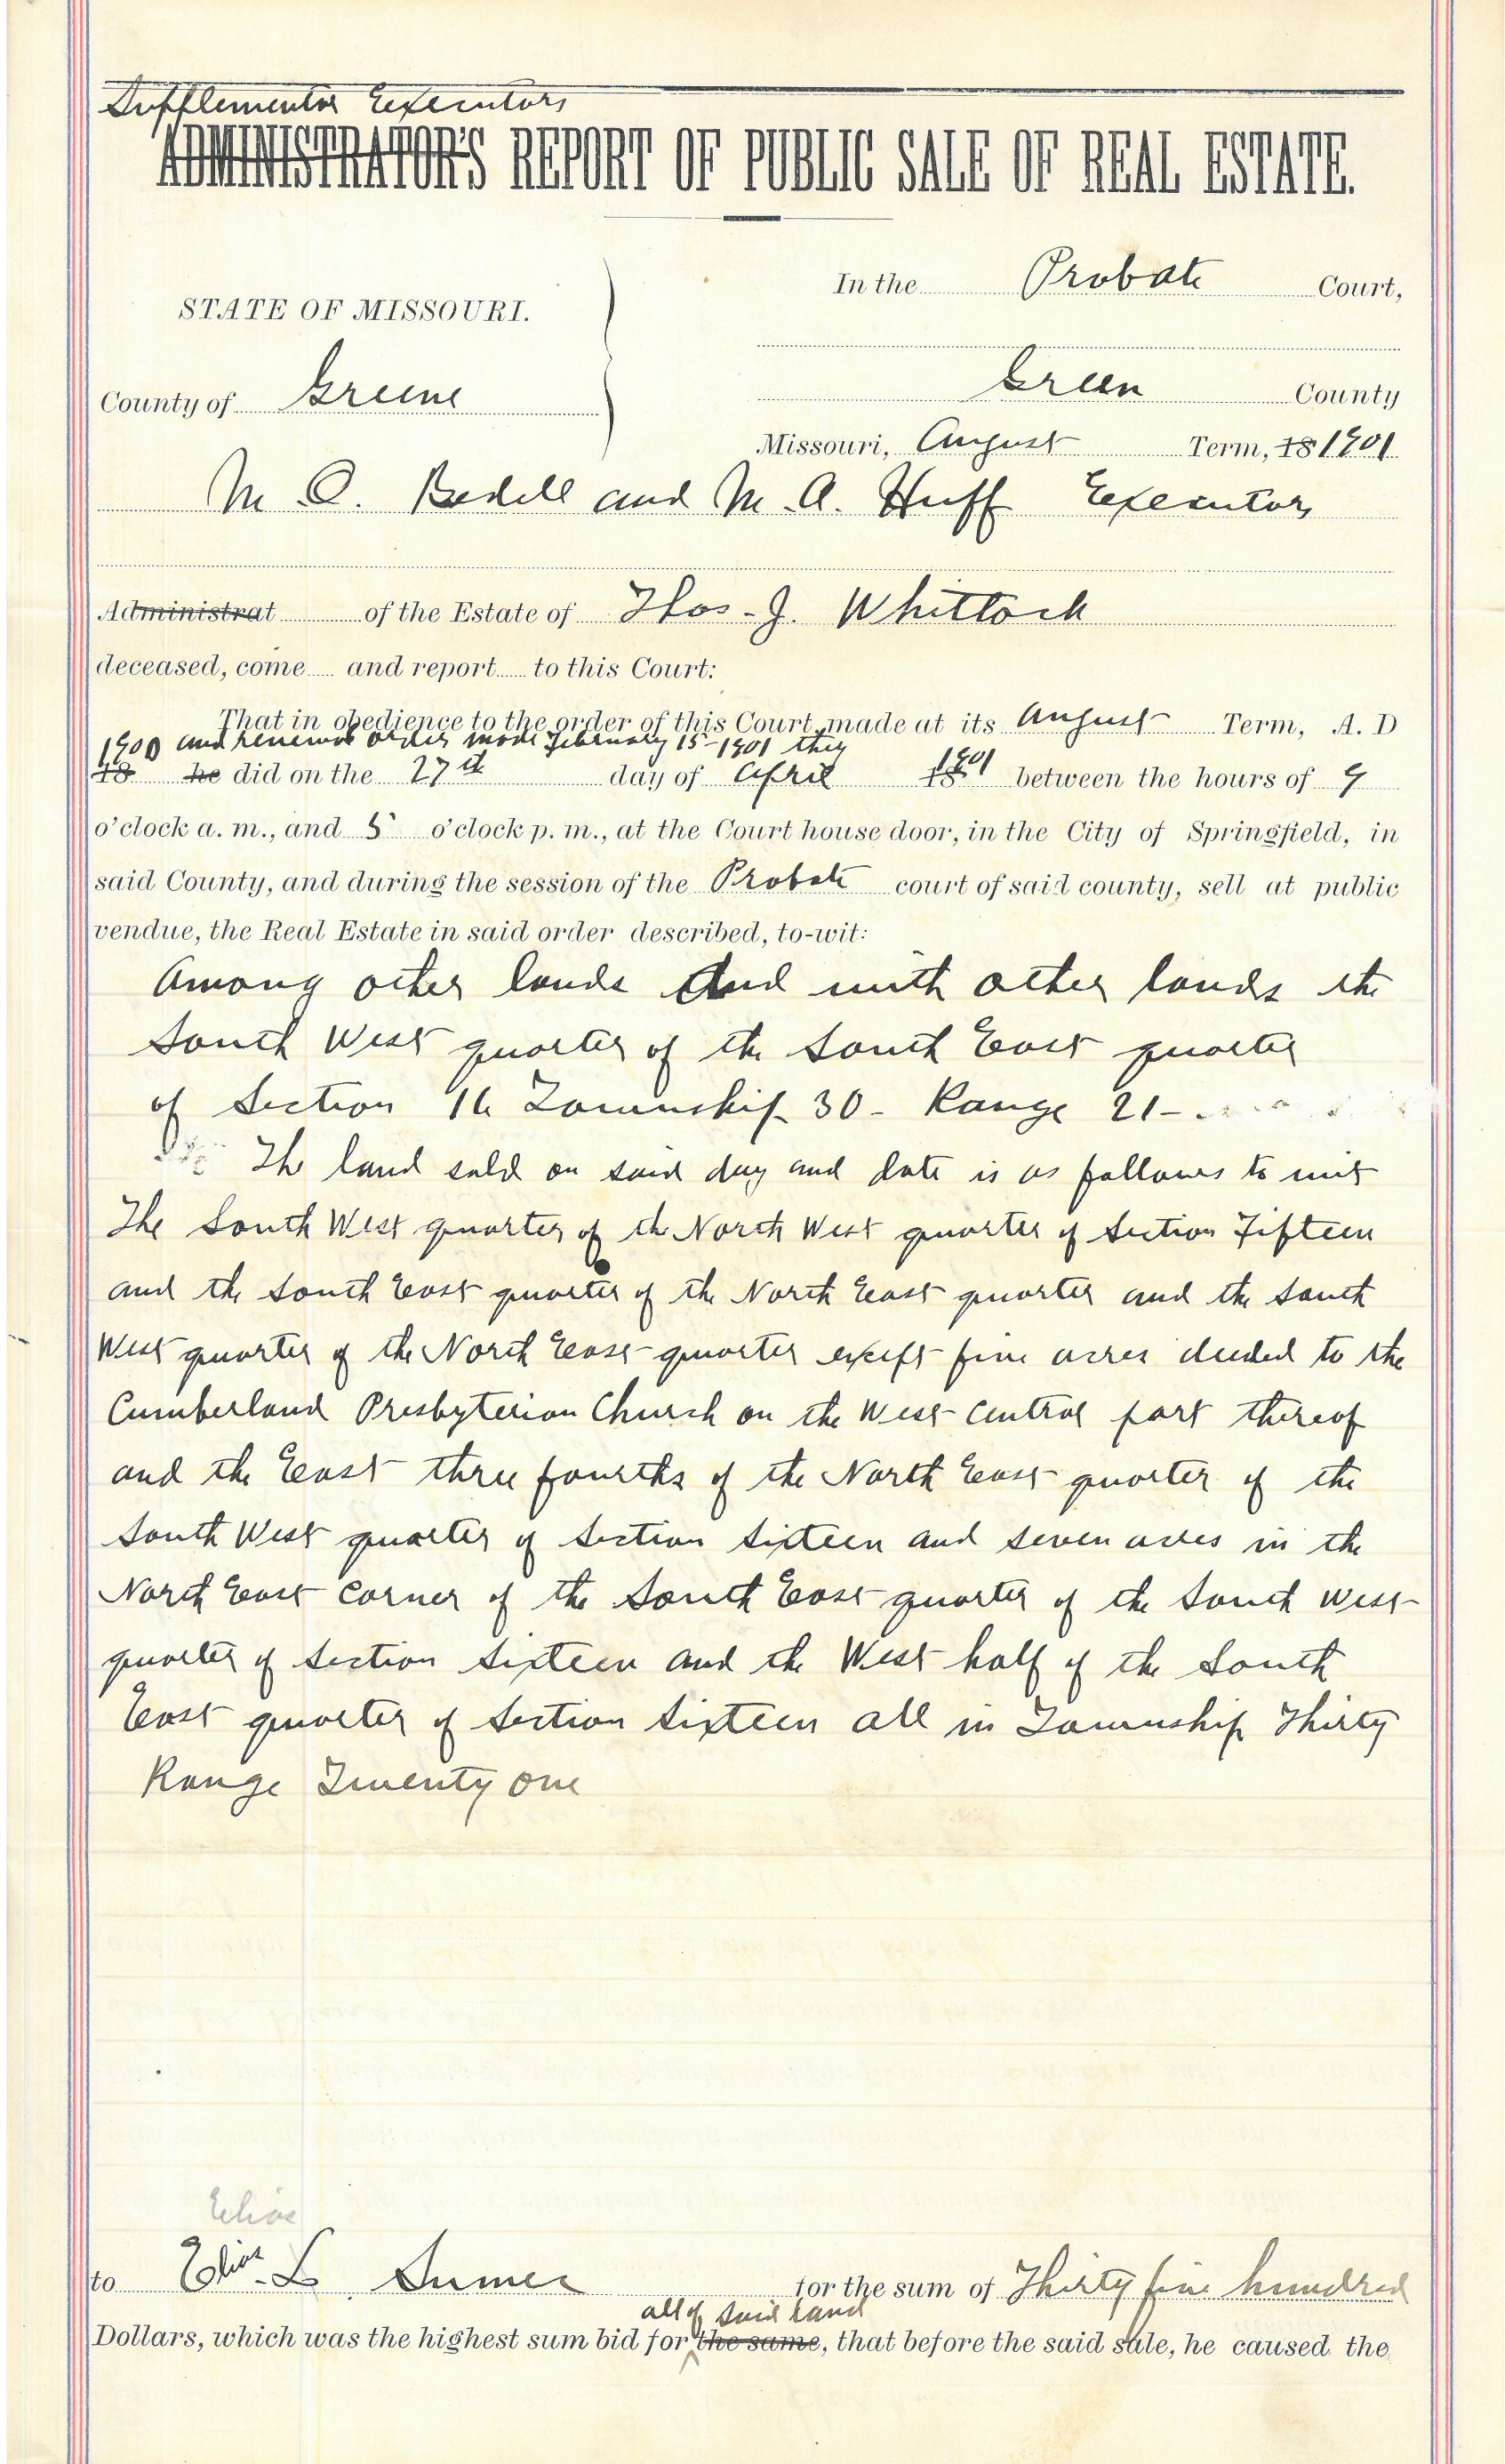 Supplemental Executors
ADMINISTRATOR'S REPORT OF PUBLIC SALE OF REAL ESTATE.
In the Probate Court,
STATE OF MISSOURI.
Green County
County of Greene
Missouri, August Term, 18 1901
M. A. Huff Executors
Administrat of the Estate of Thos. J. Whittock
deceased, come and report to this Court:
That in obedience to the order of this Court, made at its August Term, A. D
1900 and renewal order made February 15-1901 they
18 he did on the 27th day of April 18 1901 between the hours of 9
o'clock a. m., and 5 o'clock p. m., at the Court house door, in the City of Springfield, in
said County, and during the session of the Probate court of said county, sell at public
vendue, the Real Estate in said order described, to-wit:
Among other lands and with other lands the
South West quarter of the South East quarter
of Section 16 Township 30- Range 21-
The land sold on said day and date is as follows to wit
The South West quarter of the North West quarter of Section Fifteen
and the South East quarter of the North East quarter and the South
West quarter of the North East quarter except five acres deeded to the
Cumberland Presbyterian Church on the West central part thereof
and the East three fourths of the North East quarter of the
South West quarter of Section Sixteen and seven acres in the
North East corner of the South East quarter of the South West
quarter of Section Sixteen and the West half of the South
East quarter of Section Sixteen all in Township Thirty
Range Twenty one
Elias
to Elias L for the sum of Thirty five hundred
all of said land
Dollars, which was the highest sum bid for the same, that before the said sale, he caused the